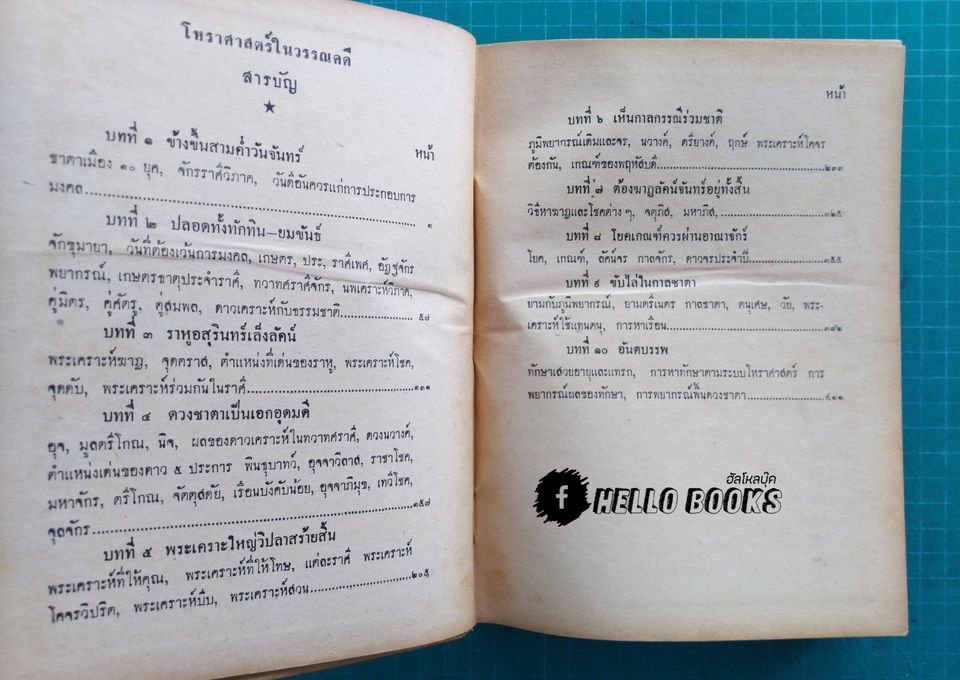 โหราศาสตร์ในวรรณคดี
สารบัญ
★
บทที่ ๑ ข้างขึ้นสามค่ำวันจันทร์ หน้า
ชาตาเมือง ๑๐ ยุค, จักรราศีวิภาค, วันดีอันควรแก่การประกอบการ
มงคล.......... ๑
บทที่ ๒ ปลอดทั้งทักทิน–ยมขันธ์
จักขุมายา, วันที่ต้องเว้นการมงคล, เกษตร, ประ, ราศีเพศ, อัฏฐจักร
พยากรณ์, เกษตรธาตุประจำราศี, ทวาทศราศีจักร, นพเคราะห์วิภาค,
คู่มิตร, คู่ศัตรู, คู่สมพล, ดาวเคราะห์กับธรรมชาติ..........๕๗
บทที่ ๓ ราหูอสุรินทร์เล็งลัคน์
พระเคราะห์ฆาฏ, จุดคราส, ตำแหน่งที่เด่นของราหู, พระเคราะห์โชค,
จุดดับ, พระเคราะห์ร่วมกันในราศี..........๑๓๑
บทที่ ๔ ดวงชาตาเป็นเอกอุดมดี
อุจ, มูลตรีโกณ, นิจ, ผลของดาวเคราะห์ในทวาทศราศี, ดวงนวางค์,
ตำแหน่งเด่นของดาว ๕ ประการ พินธุบาทว์, อุจจาวิลาส, ราชาโชค,
มหาจักร, ตรีโกณ, จัตตุสดัย, เรือนบังคับน้อย, อุจจาภิมุข, เทวีโชค,
จุลจักร..........๑๕๗
บทที่ ๕ พระเคราะห์ใหญ่วิปลาสร้ายสิ้น
พระเคราะห์ที่ให้คุณ, พระเคราะห์ที่ให้โทษ, แต่ละราศี พระเคราะห์
โคจรวิปริต, พระเคราะห์บีบ, พระเคราะห์สวน..........๒๐๕
หน้า
บทที่ ๖ เห็นกาลกรรณีร่วมชาติ
ภูมิพยากรณ์เดิมและจร, นวางค์, ตรียางค์, ฤกษ์ พระเคราะห์โคจร
ต้องกัน, เกณฑ์ของพฤหัสบดี..........
บทที่ ๗ ต้องฆาฏลัคน์จันทร์อยู่ทั้งสิ้น
วิธีหาฆาฏและโชคต่างๆ, จตุภิส, มหาภิส,..........๓๒๕
บทที่ ๘ โยคเกณฑ์ควรผ่านอาณาจักร์
โยค, เกณฑ์, ลัคน์จร กาลจักร, ดาวจรประจำปี..........๓๕๕
บทที่ ๙ ขับไล่ในกาลชาตา
ยามกับภูมิพยากรณ์, ยามตรีเนตร กาลชาตา, ตนุเศษ, วัย, พระ-
เคราะห์ใช้แทนตนุ, การหาเรือน..........๓๙๒
บทที่ ๑๐ อันตบรรพ
ทักษาเสวยอายุและแทรก, การหาทักษาตามระบบโหราศาสตร์ การ
พยากรณ์ผลของทักษา, การพยากรณ์พื้นดวงชาตา..........๔๑๑
ฮัลโหลบุ๊ค
f HELLO BOOKS